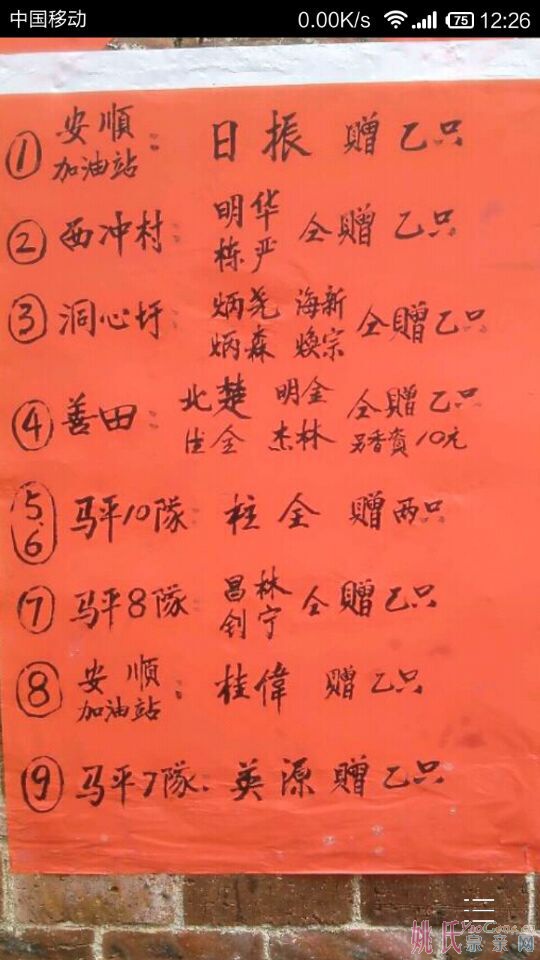 中国移动 0.00K/s 75 12:26
① 安順加油站：日振 赠乙只
② 西冲村：明华 栋严 仝赠乙只
③ 洞心圩：炳尧 海新 炳森 焕宗 仝赠乙只
④ 善田：北楚 明金 生全 杰林 仝赠乙只 另香資10元
5.6 马平10隊：柱全 赠两只
⑦ 马平8隊：昌林 钊宁 仝赠乙只
⑧ 安順加油站：桂偉 赠乙只
⑨ 马平7隊：英源赠乙只
姚氏宗亲网